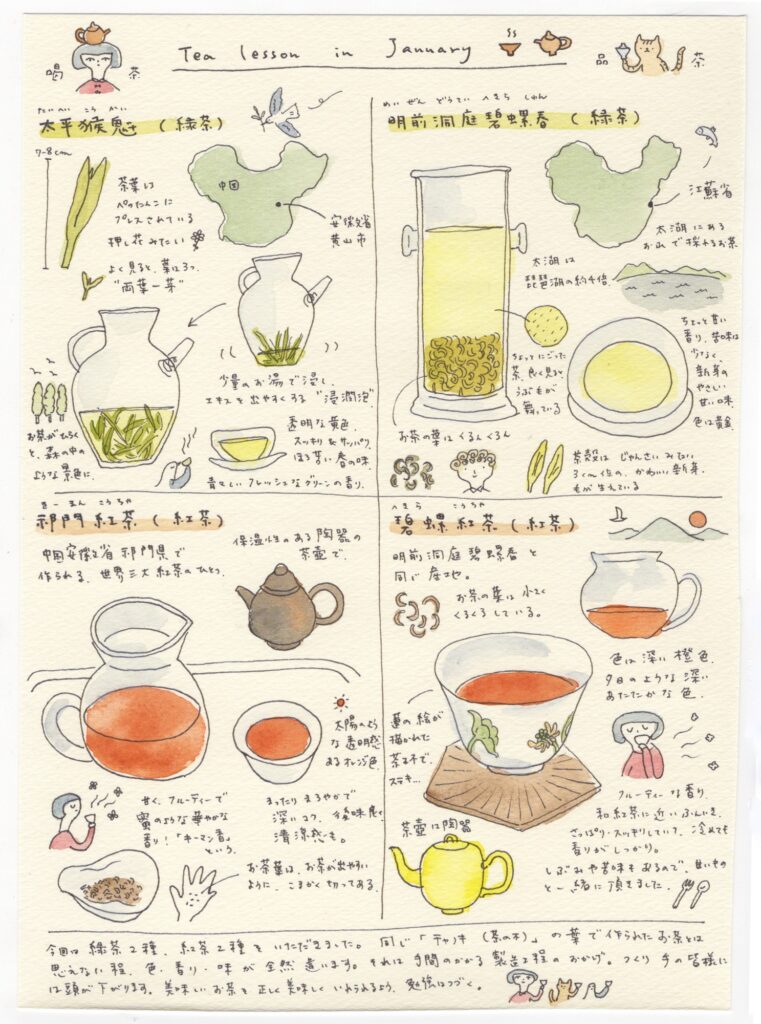 Tea lesson in January
喝茶
品茶
たいへい こう かい
太平猴魁 (緑茶)
7~8cm
茶葉は
ぺったんこに
プレスされている
押し花みたい
よく見ると、葉は3つ。
"両葉一芽"
中国
安徽省
黄山市
少量のお湯で浸し、
エキスを出やすくする "浸潤泡"
お茶がひらく
と、森の中の
ような景色に。
透明な黄色。
スッキリ&サッパリ、
ほろ苦い春の味
青々しいフレッシュなグリーンの香り。
めい ぜん どうてい へきら しゅん
明前洞庭碧螺春 (緑茶)
江蘇省
太湖にある
お山で採れるお茶
太湖は
琵琶湖の約4倍。
ちょっとにごった
茶、良く見ると、
うぶ毛が
舞っている
ちょっと甘い
香り、苦味は
少なく、
新芽の
やさしい
甘い味
色は黄金
お茶の葉はくるんくるん
茶殻はじゃんさいみたい
3cm位の、かわいい新芽。
毛が生えている
きー まん こうちゃ
祁門紅茶 (紅茶)
中国安徽省祁門県で
作られる、世界三大紅茶のひとつ。
保温性のある陶器の
茶壷で。
太陽のよう
な透明感
あるオレンジ色。
甘く、フルーティーで
蜜のような華やかな
香り!「キーマン香」
という。
まったりまろやかで
深いコク、後味良く
清涼感も。
お茶葉は、お茶が出やすい
ように、こまかく切ってある。
へきら こうちゃ
碧螺紅茶 (紅茶)
明前洞庭碧螺春と
同じ産地。
お茶の葉は小さく
くるくるしている。
色は深い橙色。
夕日のような深い
あたたかな色。
蓮の絵が
描かれた
茶杯で、
ステキ…
フルーティーな香り
和紅茶に近いふんいき。
さっぱり・スッキリしていて、冷めても
香りがしっかり。
しぶみや苦味もあるので、甘いもの
と一緒に頂きました。
茶壷は陶器
今回は緑茶2種、紅茶2種をいただきました。同じ「チャノキ(茶の木)」の葉で作られたお茶とは
思えない程、色・香り・味が全然違います。それは手間のかかる製造工程のおかげ。つくり手の皆様に
は頭が下がります。美味しいお茶を正しく美味しくいれられるよう、勉強はつづく。